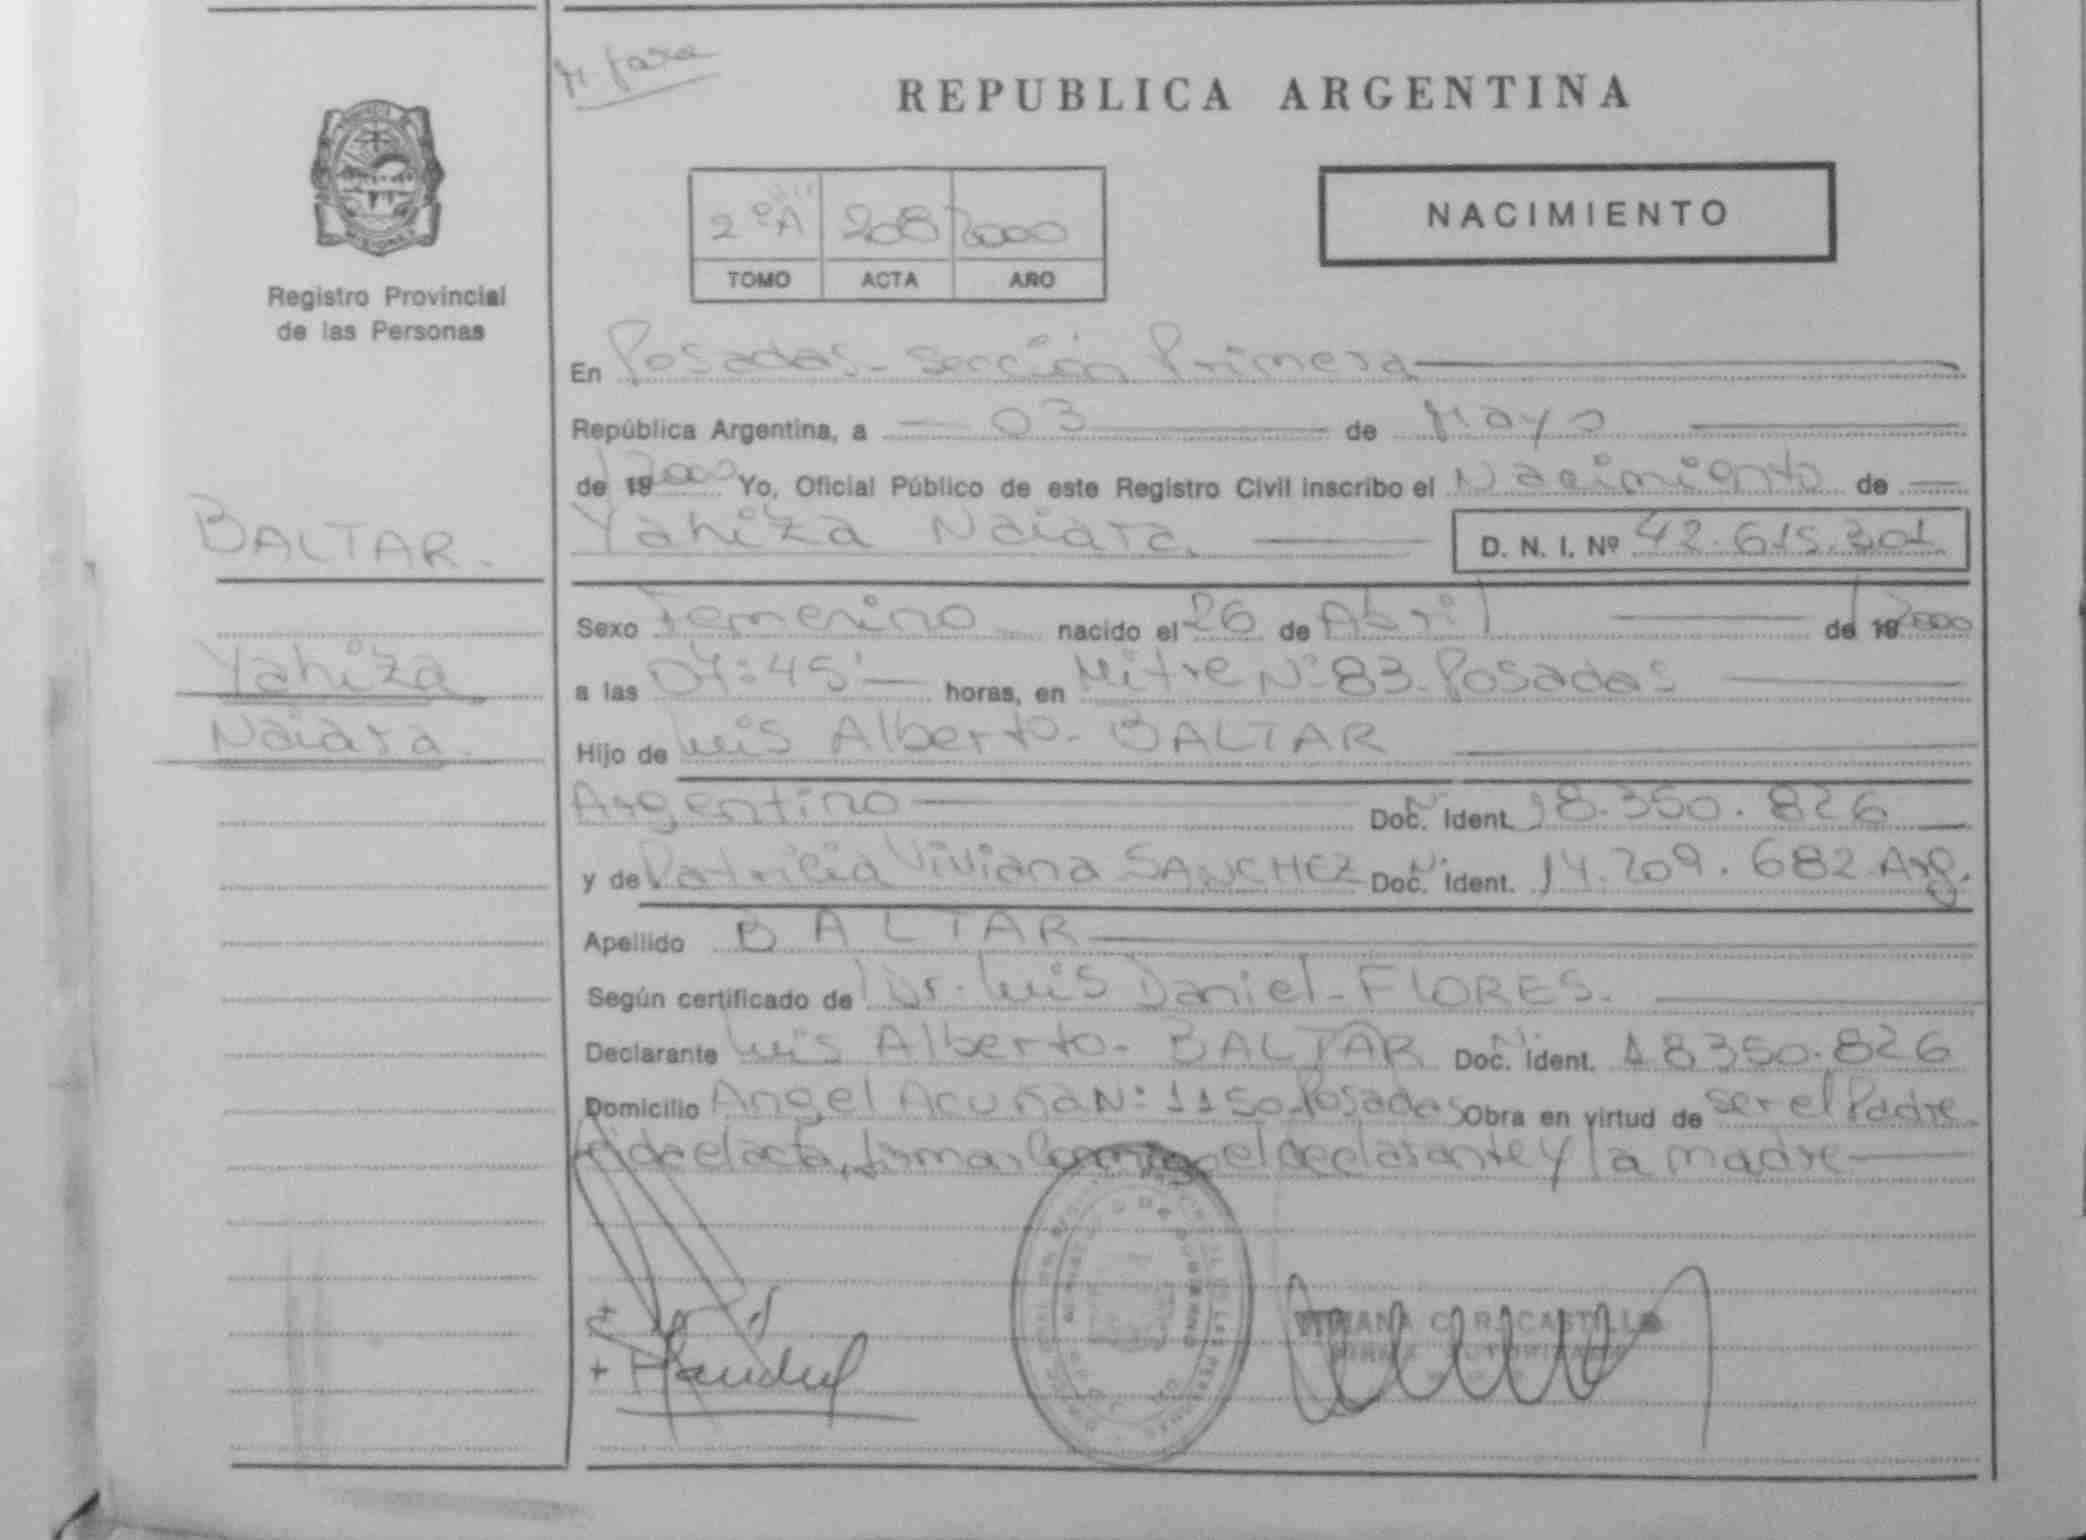 REPUBLICA ARGENTINA
MISIONES
Registro Provincial
de las Personas
2ºA 208 2000
TOMO ACTA AÑO
NACIMIENTO
En Posadas - Sección Primera
República Argentina, a 03 de Mayo
de 19 2000 Yo, Oficial Público de este Registro Civil inscribo el Nacimiento de
BALTAR.
Yahiza Naiara. D. N. I. Nº 42.615.301
Sexo Femenino nacido el 26 de Abril de 19 2000
Yahiza
a las 07:45' horas, en Mitre Nº 83. Posadas
Naiara.
Hijo de Luis Alberto - BALTAR
Argentino Doc. Ident. 18.350.826
y de Patricia Viviana SANCHEZ Doc. Ident. 14.209.682. Arg.
Apellido BALTAR
Según certificado de Dr. Luis Daniel - FLORES.
Declarante Luis Alberto - BALTAR Doc. Ident. 18350.826
Domicilio Angel Acuña Nº 1150. Posadas Obra en virtud de ser el Padre
el acta, firman el declarante y la madre
CASTILLO